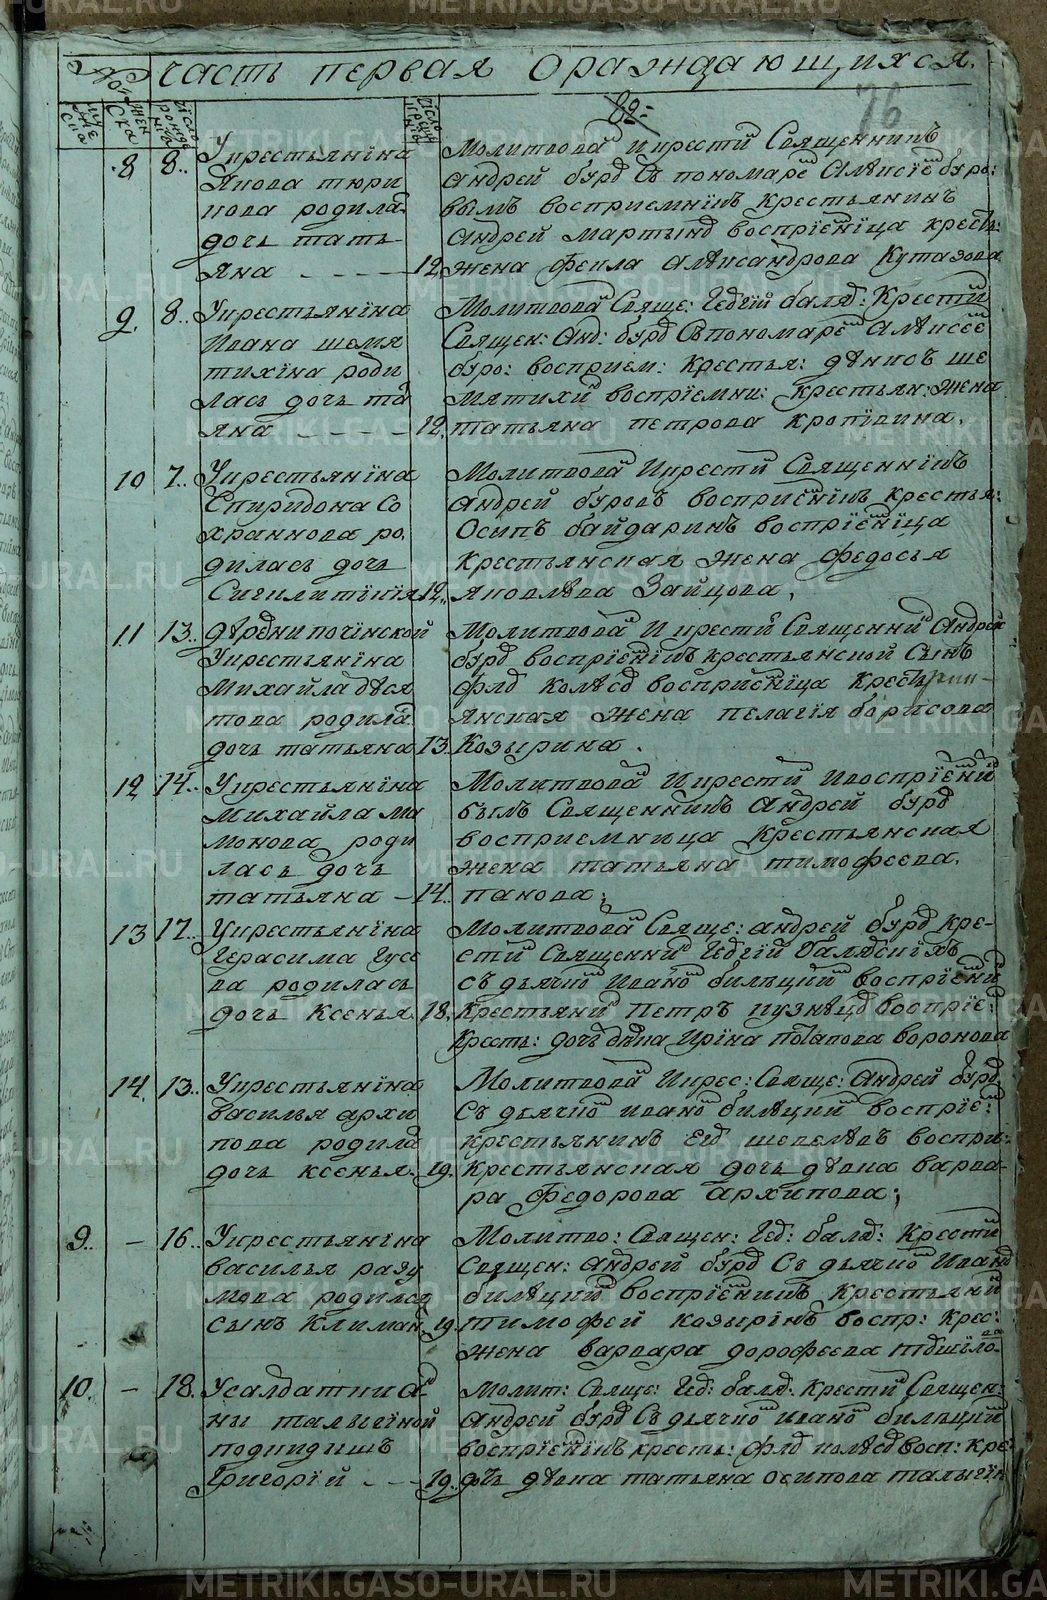 часть первая О раждающихся.
76
муже
ска
жен
ска
число
рожде
8
8..
Укрестьянина
Якова тюри
кова родила
дочь тать
яна
12
Молитвовал Икрестил Священникъ
Андрей буров Съ пономарем Алексiем буро:
вымъ восприемникъ крестьянинъ
Андрей мартынов восприемница кресть:
жена фекла Александрова Кутазова
9.
8..
Укрестьянина
Ивана шемя
тихина роди
лась дочь та
яна
12.
Молитвовал Свяще: Геогий баляд: Крестил
Священ: Анд: буров Съпономарем Алексее
буро: восприем: крестья: денисъ ше
мятихин восприемни: Крестьян: жена
татьяна петрова кропивина.
10
7..
Укрестьянина
Спиридона Со
храннова ро,
дилась дочь
12..
Молитвовал Икрестил Священникъ
Андрей буровъ восприемникъ крестья:
Осипъ байдаринъ восприемница
крестьянская жена федосья
яковлева Зайцова,
11
13..
деревни починской
Укрестьянина
Михайла деся
това родила
дочь татьяна
13.
Молитвовал И крестил Священник Андрей
буров восприемникъ крестьянской Сынъ
фрол колесов восприемница Крест
янская жена пелагiя борисова
Козырина.
12
14..
Укрестьянина
михайла ма
монова роди
лась дочь
татьяна
14.
Молитвовал Икрестил Ивосприемник
былъ Священникъ Андрей буров
восприемница крестьянская
жена татьяна тимофеева.
панова;
13
17..
Укрестьянина
Герасима Гусе
ва родилась
дочь ксенья
18.
Молитвовал Свяще: андрей буров кре-
стил Священник Геогий Балядскiхъ
съ дьячком Иваном билецким восприемник
крестьянин Петръ кузнецов восприе:
кресть: дочь девка Ирина Потапова воронова
14.
13..
Укрестьянина
василья архи
пова родила
дочь ксенья.
19.
Молитвовал Икрес: Свяще: Андрей буров
Съ дьячком иваном билецким восприе:
крестьянинъ Егор шепелевъ воспри:
крестьянская дочь девка варва
ра Федорова архипова;
9..
–
16..
Укрестьянина
василья разу
мова родился
сынъ Климан
19.
Молитво: Священ: Гео: баляд: Крестил
Священ: андрей буров Съ дьячком Иваном
билецким восприемникъ Крестьянин
тимофей козыринъ воспр: крес:
жена варвара дорофеева
10.
–
18.
Усалдатки Ан
ны талыгиной
подкидышъ
Григорiй
19..
Молит: Свяще: Гео: баляд: крестил Священ:
андрей буров Съ дьячком иваном билецким
восприемникъ кресть: фрол колесов восп: кре
дчь девка татьяна осипова талыгин